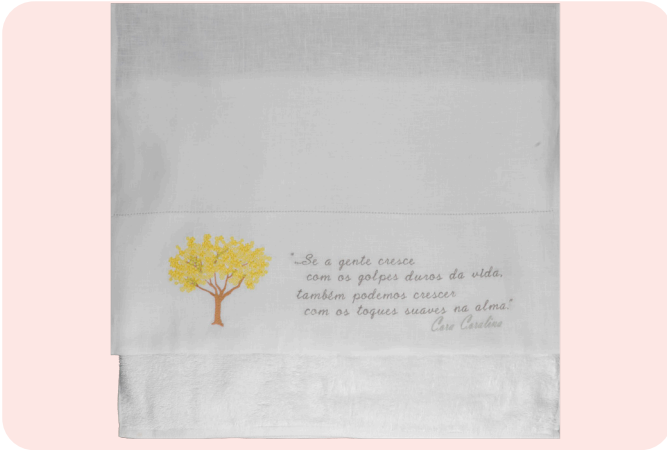 "Se a gente cresce
com os golpes duros da vida,
também podemos crescer
com os toques suaves na alma."
Cora Coralina